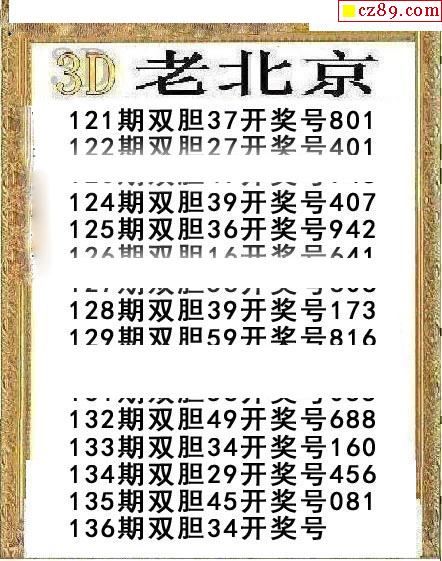 cz89.com
3D 老北京
121期双胆37开奖号801
122期双胆27开奖号401
124期双胆39开奖号407
125期双胆36开奖号942
126期双胆16开奖号641
128期双胆39开奖号173
129期双胆59开奖号816
132期双胆49开奖号688
133期双胆34开奖号160
134期双胆29开奖号456
135期双胆45开奖号081
136期双胆34开奖号